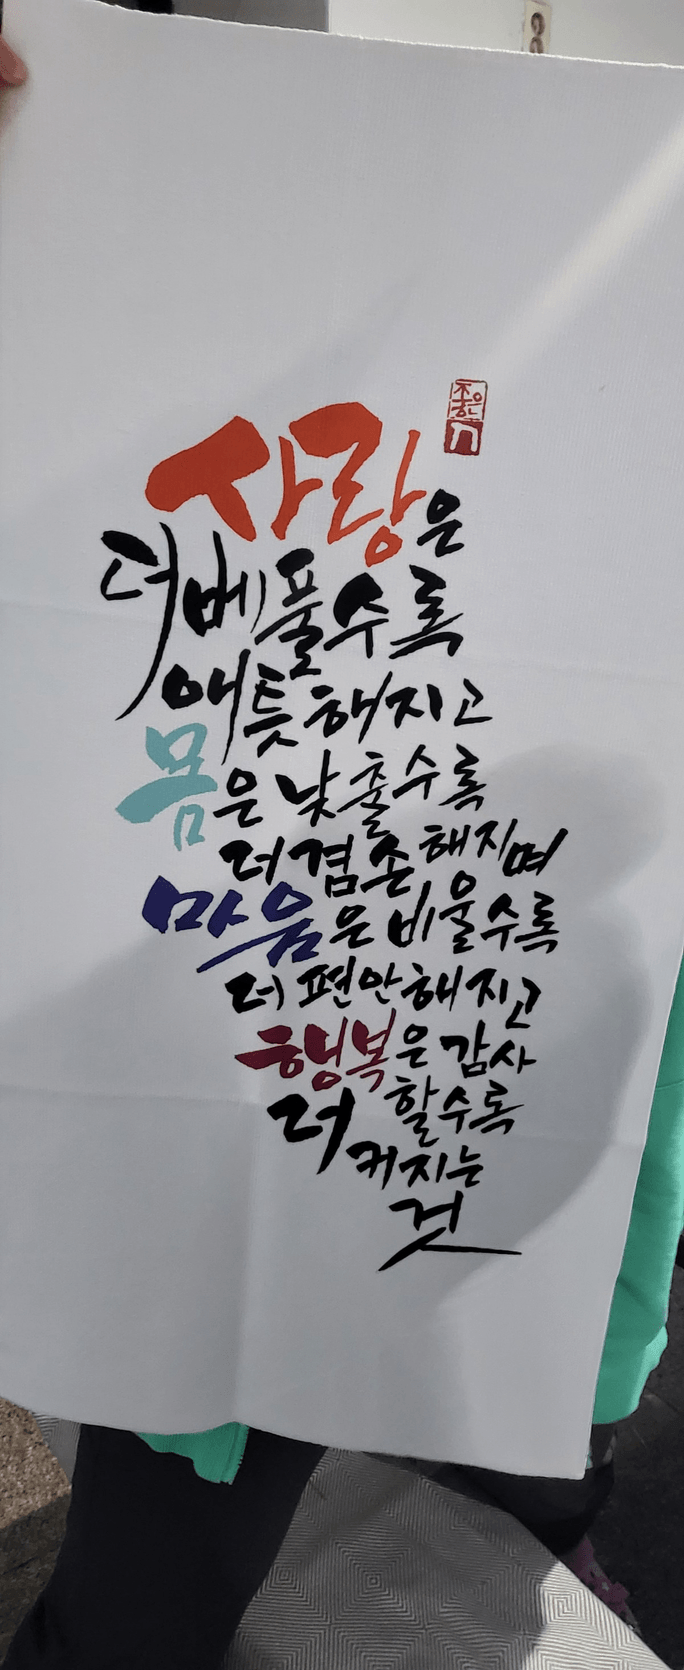 사랑은
더 베풀수록
애틋해지고
몸은 낮출수록
더 겸손해지며
마음은 비울수록
더 편안해지고
행복은 감사
할수록
더 커지는
것